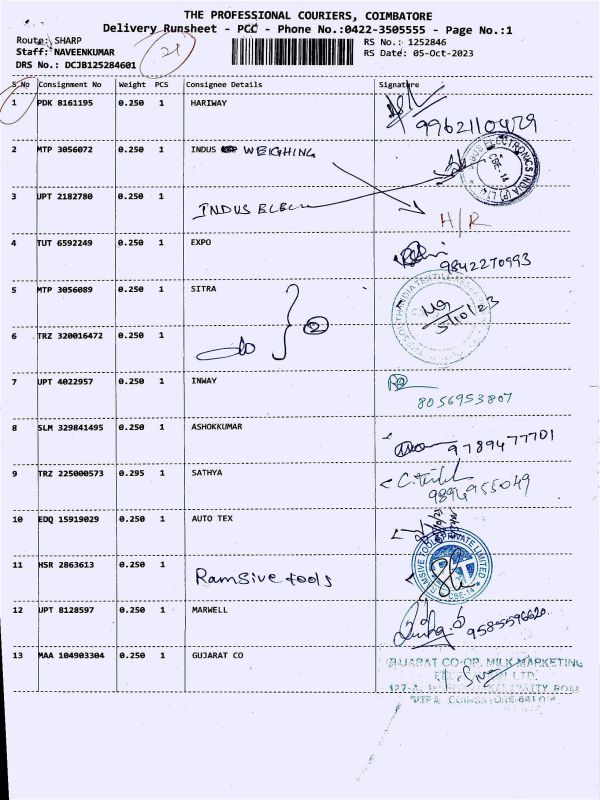 THE PROFESSIONAL COURIERS, COIMBATORE
Delivery Runsheet - PCC - Phone No.:0422-3505555 - Page No.:1
Route: SHARP
Staff: NAVEENKUMAR
DRS No.: DCJB125284601
21
RS No.: 1252846
RS Date: 05-Oct-2023
S No Consignment No Weight PCS Consignee Details Signature
1 PDK 8161195 0.250 1 HARIWAY
9962110429
2 MTP 3056072 0.250 1 INDUS WEIGHING
ELECTRONICS INDIA (P) LTD
CBE-14
3 UPT 2182780 0.250 1 INDUS ELEC
H/R
4 TUT 6592249 0.250 1 EXPO
9842270993
5 MTP 3056089 0.250 1 SITRA
5/10/23
2
6 TRZ 320016472 0.250 1 do
7 UPT 4022957 0.250 1 INWAY
8056953807
8 SLM 329841495 0.250 1 ASHOKKUMAR
9789477701
9 TRZ 225000573 0.295 1 SATHYA
9894955049
10 EDQ 15919029 0.250 1 AUTO TEX
11 HSR 2863613 0.250 1 Ramsive tools
RAMSIVE TOOLS PRIVATE LIMITED
CBE-14
12 UPT 8128597 0.250 1 MARWELL
9585596620
13 MAA 104903304 0.250 1 GUJARAT CO
GUJARAT CO-OP. MILK MARKETING
LTD.